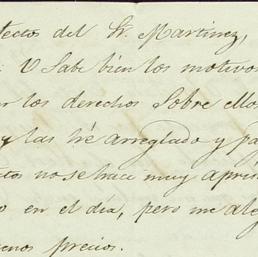 fectos del Sr. Martinez,
V Sabe bien los motivos
r los derechos Sobre ellos
y las hé arreglado y pa
tos no se hace muy apris
o en el dia, pero me aleg
enos precios.